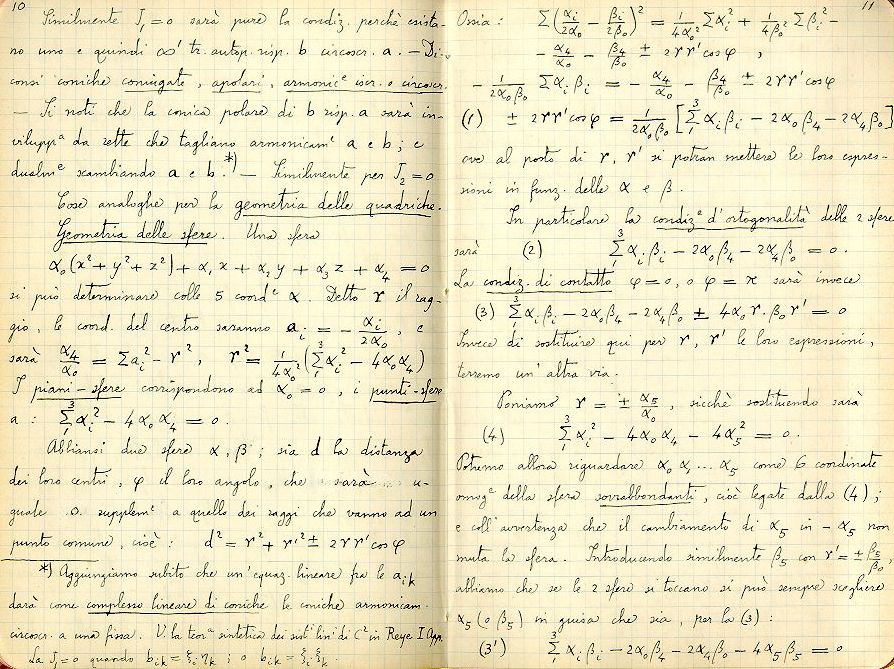 10
Similmente J₁=0 sarà pure la condiz. perchè esista-
no uno e quindi ∞¹ tr. autop. risp. b circoscr. a. — Di-
consi coniche coniugate, apolari, armonicᵉ iscr. o circoscr.
— Si noti che la conica polare di b risp. a sarà in-
viluppᵃ da rette che tagliano armonicamᵗ a e b; e
dualmᵉ scambiando a e b.*) — Similmente per J₂=0
Cose analoghe per la geometria delle quadriche.
Geometria delle sfere. Una sfera
α₀(x²+y²+z²)+α₁x+α₂y+α₃z+α₄=0
si può determinare colle 5 coordᵉ α. Detto r il rag-
gio, le coord. del centro saranno aᵢ = - αᵢ/2α₀, e
sarà α₄/α₀ = Σaᵢ² - r², r² = 1/4α₀² (Σ₁³αᵢ² - 4α₀α₄)
I piani-sfere corrispondono ad α₀=0, i punti-sfere
a: Σ₁³ αᵢ² - 4α₀α₄ = 0.
Abbiansi due sfere α, β; sia d la distanza
dei loro centri, φ il loro angolo, che sarà u-
guale o supplemᵉ a quello dei raggi che vanno ad un
punto comune, cioè: d² = r² + r'² ± 2rr'cosφ
*) Aggiungiamo subito che un'equaz. lineare fra le aᵢₖ
darà come complesso lineare di coniche le coniche armonicam.
circoscr. a una fissa. V. la teorᵃ sintetica dei sistⁱ linⁱ di C² in Reye I App.
La J₁=0 quando bᵢₖ=ξᵢηₖ; o bᵢₖ=ξᵢξₖ.
11
Ossia: Σ(αᵢ/2α₀ - βᵢ/2β₀)² = 1/4α₀² Σαᵢ² + 1/4β₀² Σβᵢ² -
- α₄/α₀ - β₄/β₀ ± 2rr'cosφ,
- 1/2α₀β₀ Σαᵢβᵢ = - α₄/α₀ - β₄/β₀ ± 2rr'cosφ
(1) ± 2rr'cosφ = 1/2α₀β₀ [Σ₁³ αᵢβᵢ - 2α₀β₄ - 2α₄β₀]
ove al posto di r, r' si potran mettere le loro espres-
sioni in funz. delle α e β.
In particolare la condizᵉ d'ortogonalità delle 2 sfere
sarà (2) Σ₁³ αᵢβᵢ - 2α₀β₄ - 2α₄β₀ = 0.
La condiz. di contatto φ=0, o φ=π sarà invece
(3) Σ₁³ αᵢβᵢ - 2α₀β₄ - 2α₄β₀ ± 4α₀r.β₀r' = 0
Invece di sostituire qui per r, r' le loro espressioni,
terremo un'altra via.
Poniamo r = ± α₅/α₀, sicchè sostituendo sarà
(4) Σ₁³ αᵢ² - 4α₀α₄ - 4α₅² = 0.
Potremo allora riguardare α₀ α₁ ... α₅ come 6 coordinate
omogᵉ della sfera sovrabbondanti, cioè legate dalla (4);
e coll'avvertenza che il cambiamento di α₅ in -α₅ non
muta la sfera. Introducendo similmente β₅ con r'=±β₅/β₀,
abbiamo che se le 2 sfere si toccano si può sempre scegliere
α₅ (o β₅) in guisa che sia, per la (3):
(3') Σ₁³ αᵢβᵢ - 2α₀β₄ - 2α₄β₀ - 4α₅β₅ = 0